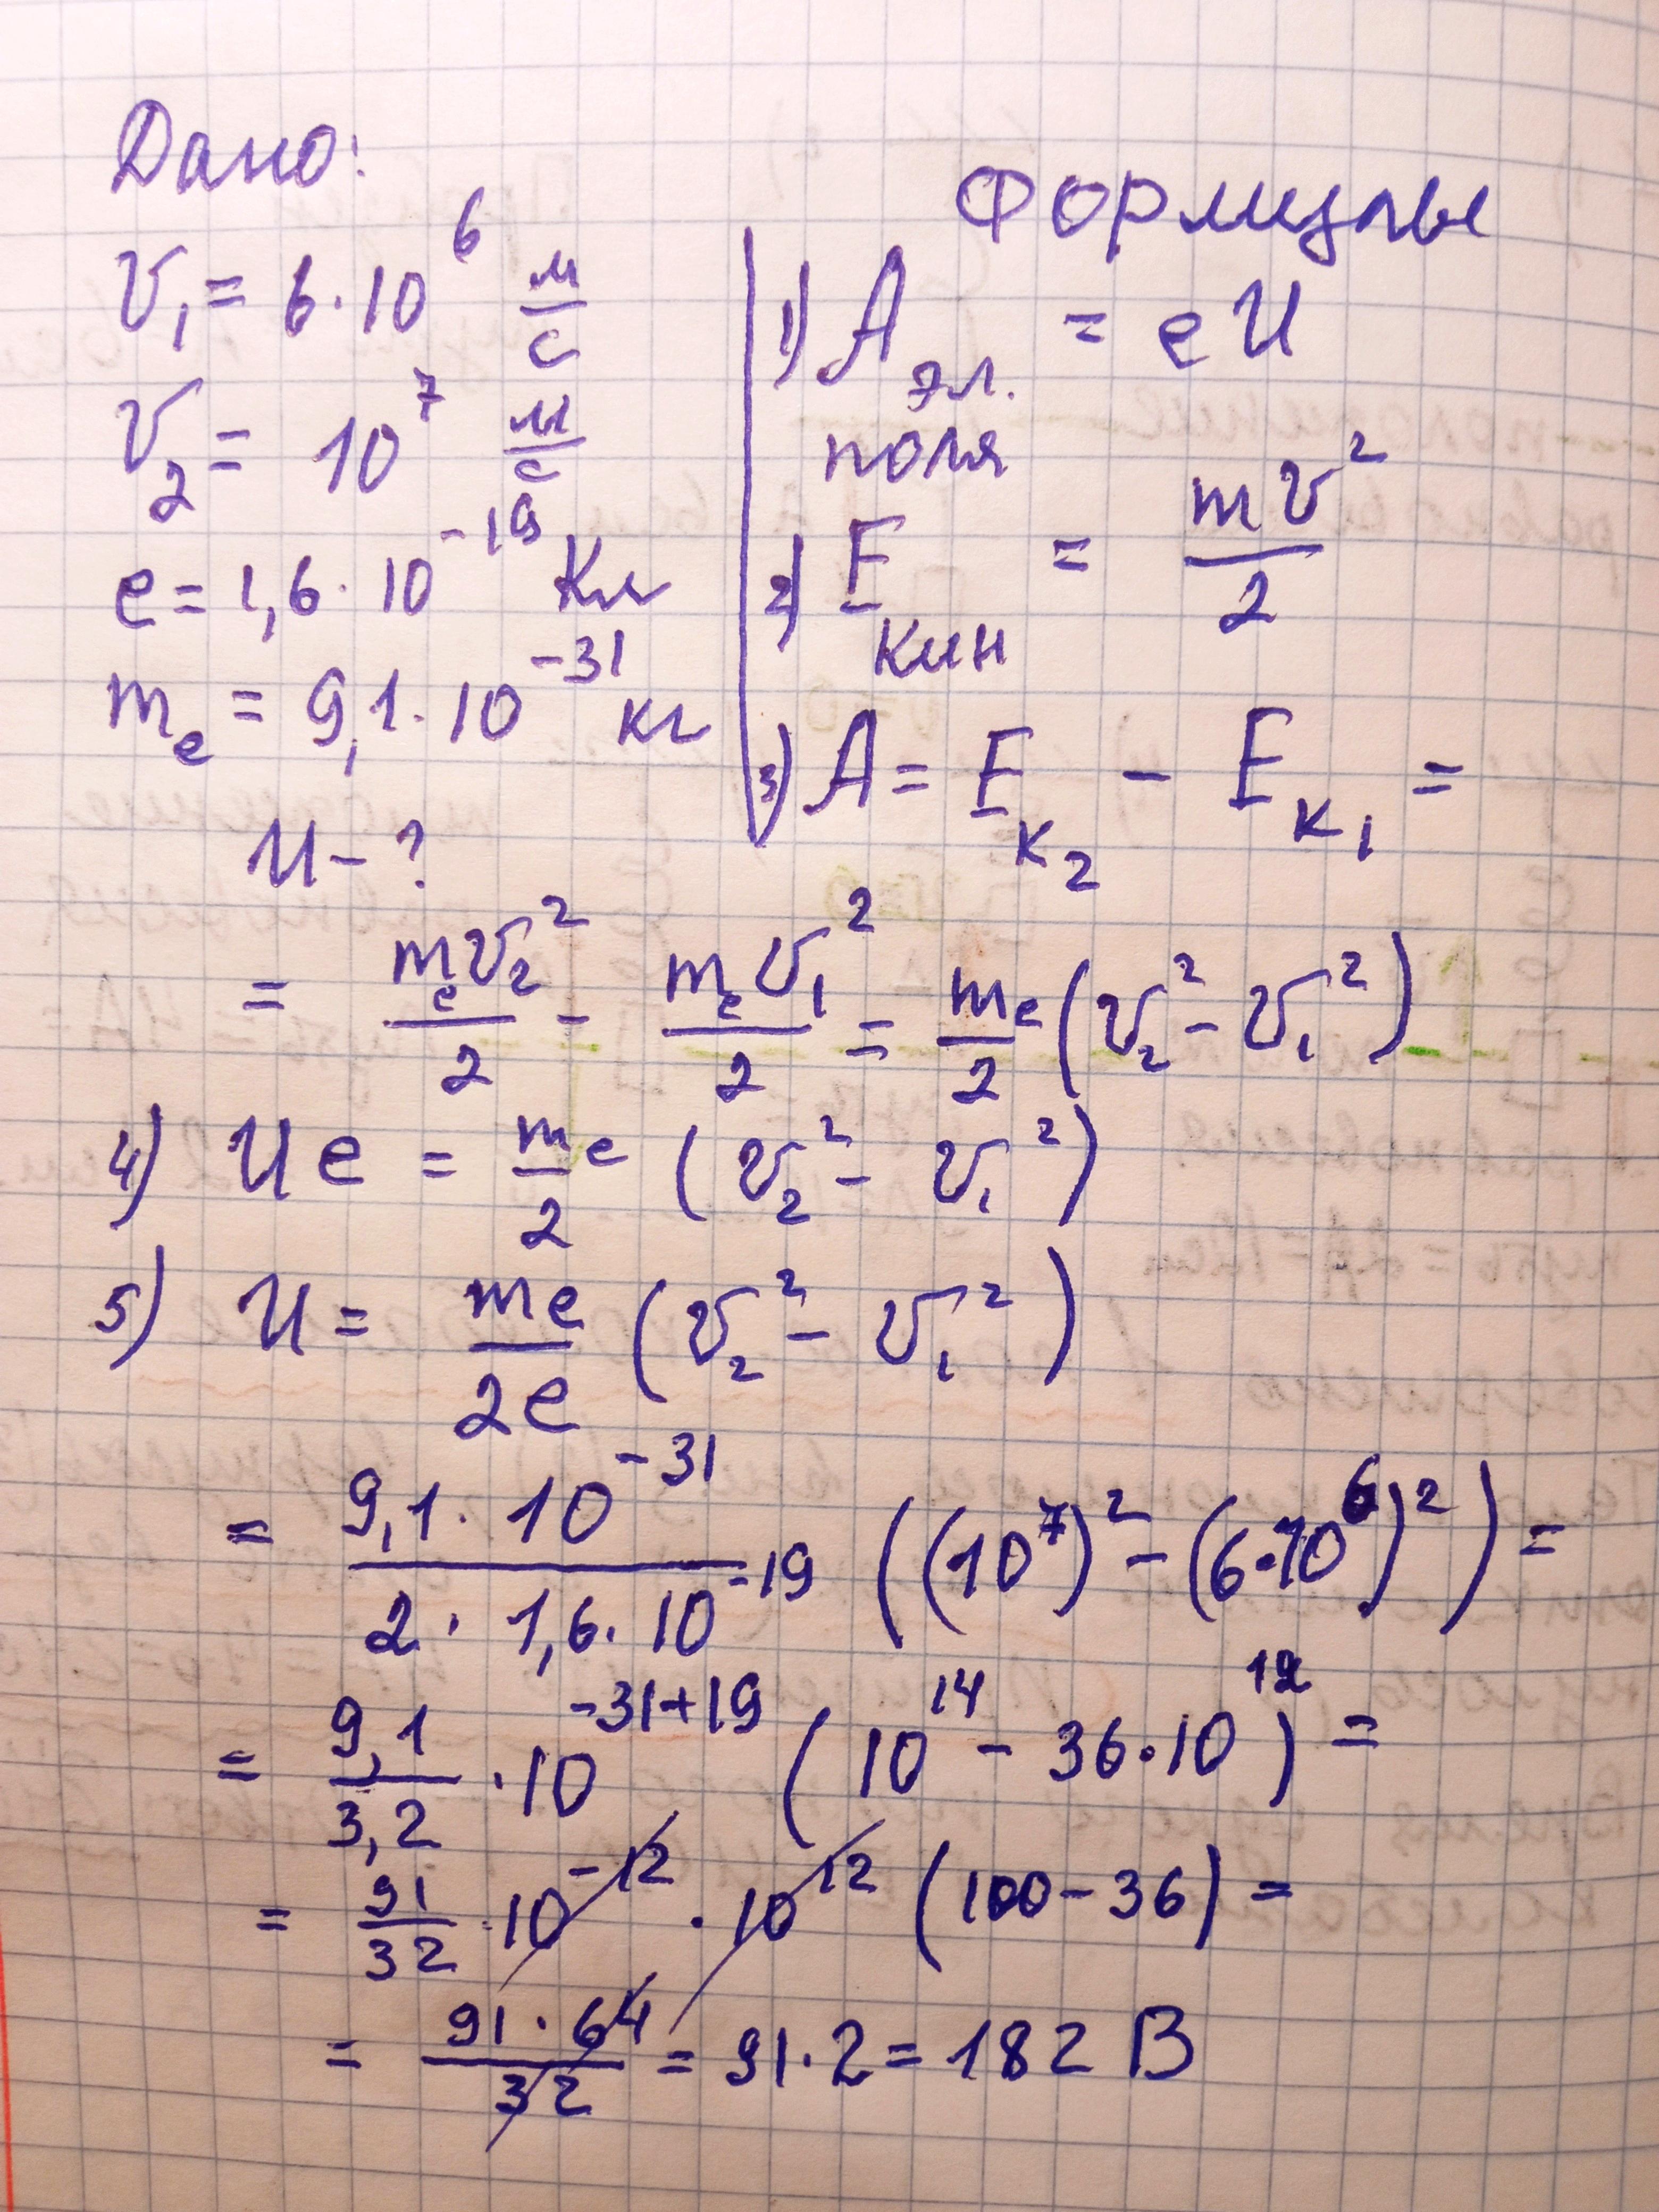 Дано:
v₁ = 6·10⁶ м/с
v₂ = 10⁷ м/с
e = 1,6·10⁻¹⁹ Кл
mₑ = 9,1·10⁻³¹ кг
U - ?
Формулы
1) A эл. поля = eU
2) E кин = mv²/2
3) A = E к₂ - E к₁ =
= mₑv₂²/2 - mₑv₁²/2 = mₑ/2 (v₂² - v₁²)
4) Ue = mₑ/2 (v₂² - v₁²)
5) U = mₑ/2e (v₂² - v₁²)
= 9,1·10⁻³¹/2·1,6·10⁻¹⁹ ((10⁷)² - (6·10⁶)²) =
= 9,1/3,2 ·10⁻³¹⁺¹⁹ (10¹⁴ - 36·10¹²) =
= 91/32 ·10⁻¹² ·10¹² (100 - 36) =
= 91·64/32 = 91·2 = 182 В